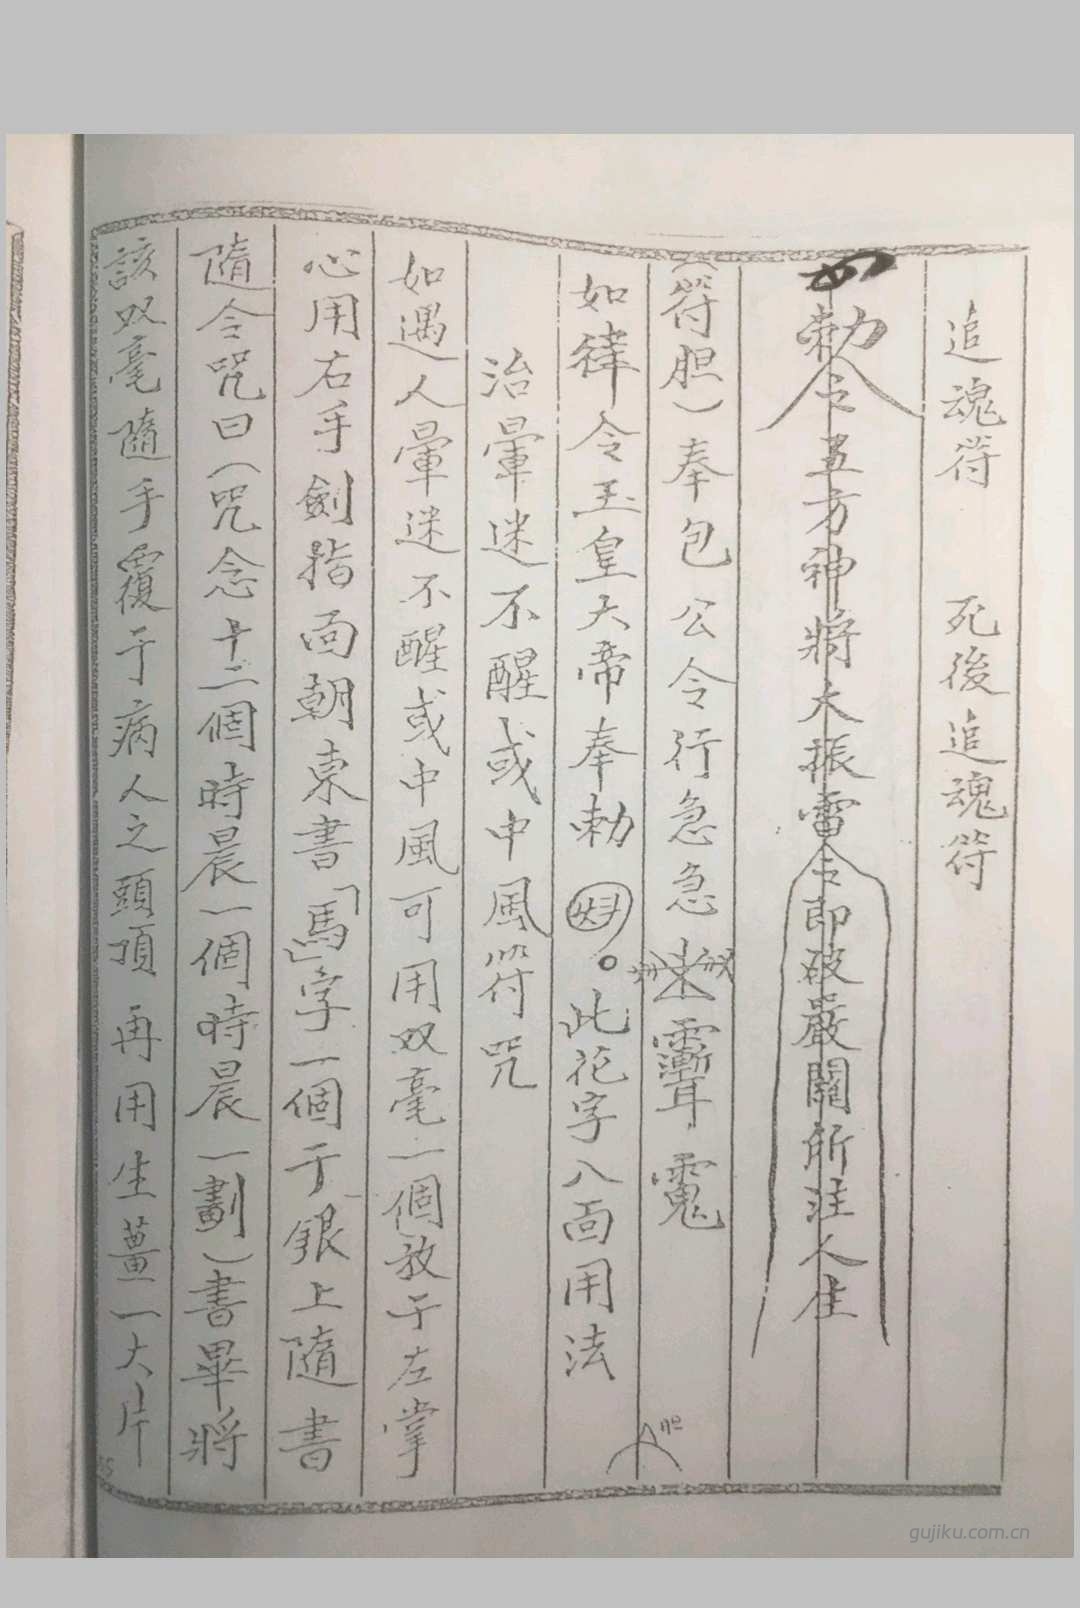 追魂符　死後追魂符
勅令五方神將大振雷令即破嚴關所注人生
(符胆)奉包公令行急急
如律令玉皇大帝奉勅 。此花字八面用法
胆
治暈迷不醒或中風符咒
如遇人暈迷不醒或中風可用双毫一個放于左掌
心用右手劍指面朝東書「馬」字一個于銀上隨書
隨令咒曰(咒念十二個時晨一個時晨一劃)書畢將
該双毫隨手覆于病人之頭項再用生薑一大片
gujiku.com.cn